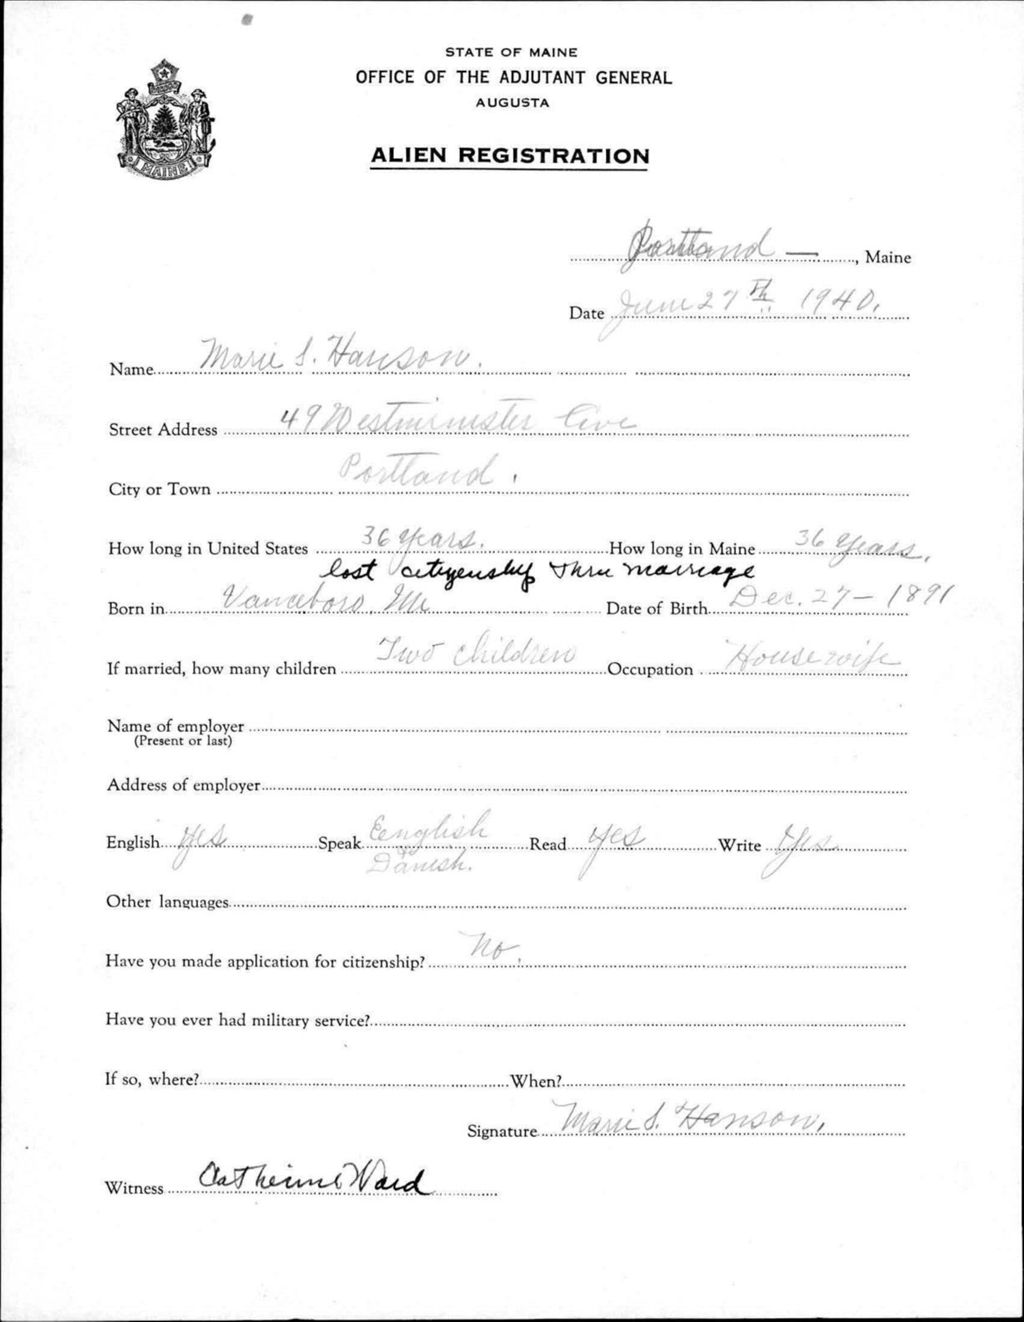 STATE OF MAINE
OFFICE OF THE ADJUTANT GENERAL
AUGUSTA
ALIEN REGISTRATION
MAINE
Portland —, Maine
Date June 27th 1940.
Name Marie S. Hanson.
Street Address 49 Westminister Ave
City or Town Portland.
How long in United States 36 Years. How long in Maine 36 Years.
lost citizenship thru marriage
Born in Vanceboro, Me Date of Birth Dec. 27 – 1891
If married, how many children Two Children Occupation Housewife
Name of employer
(Present or last)
Address of employer
English Yes Speak Eenglish Read Yes Write Yes
Danish.
Other languages
Have you made application for citizenship? No.
Have you ever had military service?
If so, where? When?
Signature Marie S. Hanson.
Witness Catherine Ward